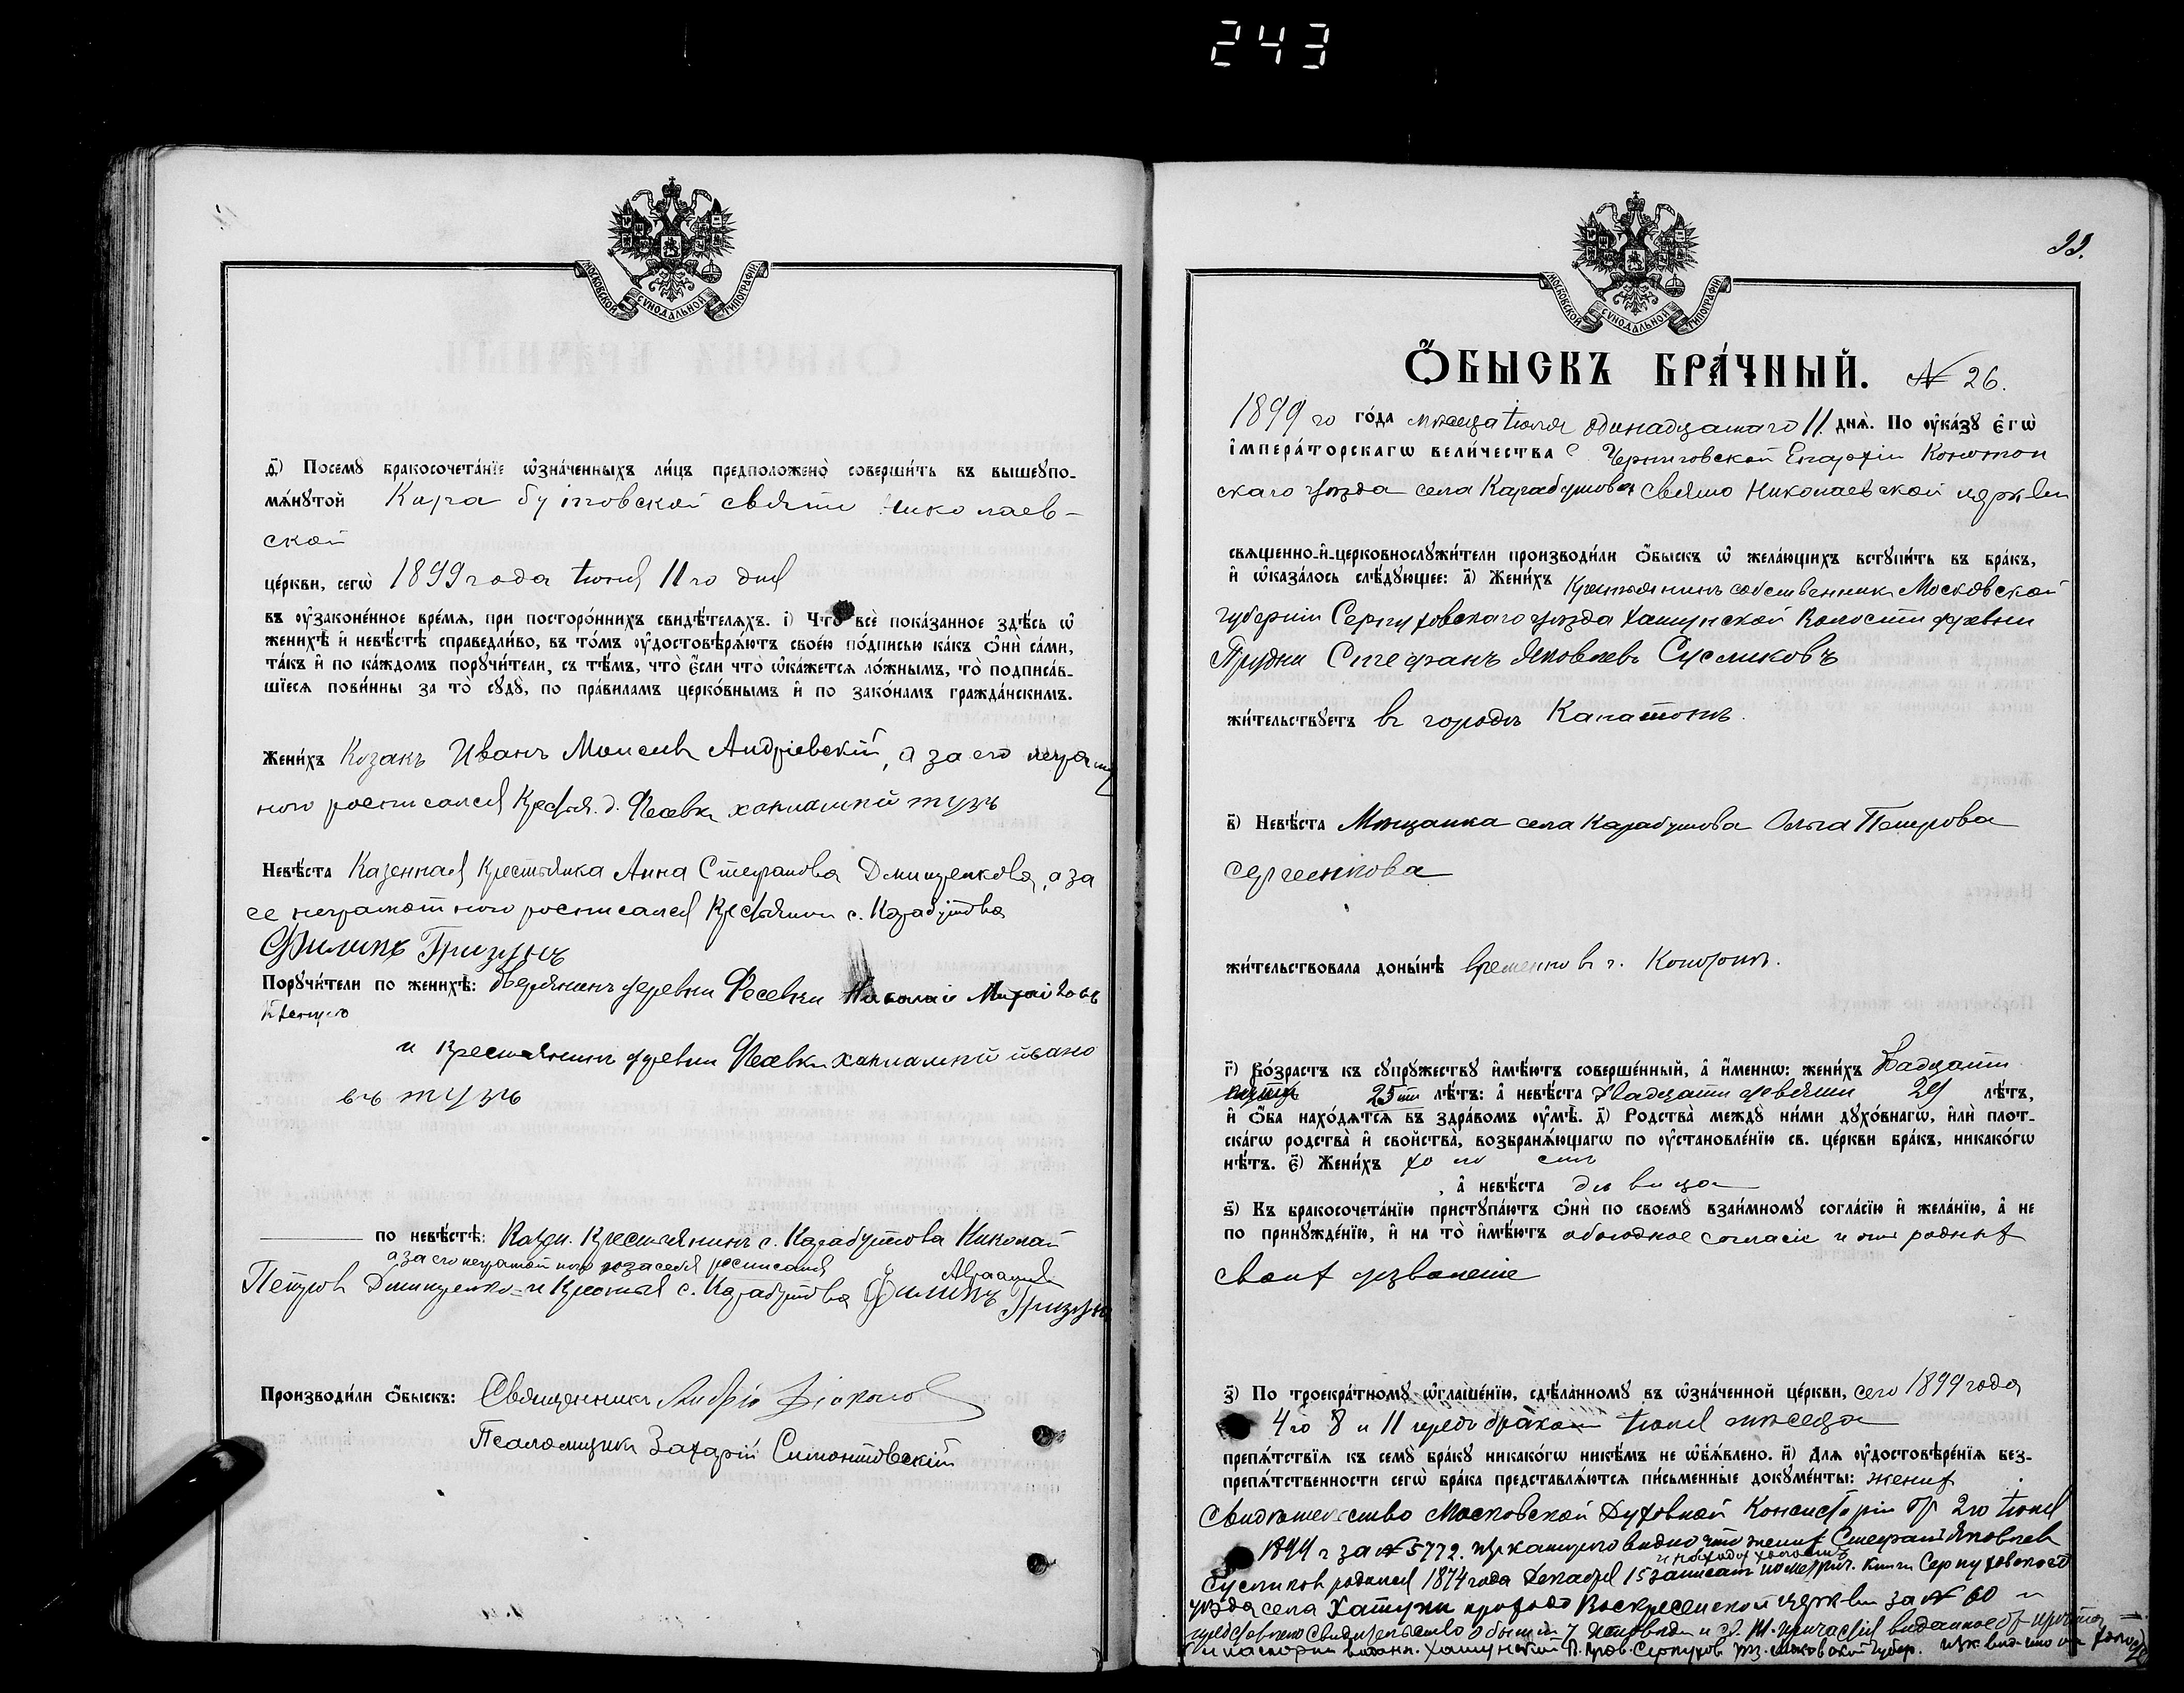 243
МОСКОВСКОЙ СѴНОДАЛЬНОЙ ТИПОГРАФІИ
ѳ҃) Посемꙋ̀ бракосочета́нїе ѡ҆зна́ченныхъ ли́цъ предположено̀ соверши́ть въ вышеꙋпо-
мѧ́нꙋтой Карабутовской свято Николаев-
ской
це́ркви, сегѡ̀ 1899 года Іюня 11 го дня
въ ᲂу҆законе́нное вре́мѧ, при посторо́ннихъ свидѣ́телѧхъ. і҃) Что̀ всѐ пока́занное здѣ́сь ѡ҆
женихѣ̀ и҆ невѣ́стѣ справедли́во, въ то́мъ ᲂу҆достовѣрѧ́ютъ свое́ю по́дписью ка́къ ѻ҆нѝ са́ми,
та́къ и҆ по ка́ждомъ порꙋчи́тели, съ тѣ́мъ, что̀ є҆́сли что̀ ѡ҆ка́жетсѧ ло́жнымъ, то̀ подписа́в-
шїесѧ пови́нны за то̀ сꙋдꙋ̀, по пра́виламъ церко́внымъ и҆ по зако́намъ гражда́нскимъ.
Жени́хъ Козакъ Иванъ Моисеевъ Андріевскій, а за его неграмот
ного росписался Крестья. д. Фесевки
Невѣ́ста Казенная Крестьянка Анна Стефанова Дмитренкова, а за
ее неграмотного росписался Крестьянин с. Карабутова
Филипъ Гризунъ
Порꙋчи́тели по женихѣ̀: дворянинъ деревни Фесевки Николай
и крестьянинъ деревни Фесевки
по невѣ́стѣ: Казен. Крестьянинъ с. Карабутова Николай
а за его неграмотного и за себя росписался
Петров Дмитренко и Крестья с. Карабутова Филипъ Гризунъ
Производи́ли ѻ҆́быскъ: Священникъ
Псаломщикъ Захарій Симонтовскій
33.
МОСКОВСКОЙ СѴНОДАЛЬНОЙ ТИПОГРАФІИ
Ѻ҆́БЫСКЪ БРА́ЧНЫЙ. № 26.
1899 го го́да мѣсяца Іюля одинадцатаго 11 днѧ̀. По ᲂу҆ка́зꙋ Є҆гѡ̀
І҆мпера́торскагѡ Вели́чества Черниговской Епархіи Конотоп
скаго уѣзда села Карабутова Свято Николаевской церкви
свѧще́нно-и҆-церковнослꙋжи́тели производи́ли ѻ҆́быскъ ѡ҆ жела́ющихъ встꙋпи́ть въ бра́къ,
и҆ ѡ҆каза́лось слѣ́дꙋющее: а҃) Жени́хъ Крестьянинъ собственник Московской
губерніи Серпуховскаго уѣзда Хатунской Волости деревни
Прудни Стефанъ Яковлевъ Сусликовъ
жи́тельствꙋетъ въ городѣ Канатопѣ.
в҃) Невѣ́ста Мѣщанка села Карабутова Ольга Петрова
Сергеенкова
жи́тельствовала доны́нѣ временно в г. Конотопѣ.
г҃) Во́зрастъ къ сꙋпрꙋ́жествꙋ и҆мѣ́ютъ соверше́нный, а҆ и҆́меннѡ: жени́хъ двадцати
пяти 25 ти лѣ́тъ: а҆ невѣ́ста двадцати девяти 29 лѣ́тъ,
и҆ ѻ҆́ба нахо́дѧтсѧ въ здра́вомъ ᲂу҆мѣ̀. д҃) Родства̀ междꙋ̀ ни́ми дꙋхо́внагѡ, и҆лѝ плот-
ска́гѡ родства̀ и҆ свойства̀, возбранѧ́ющагѡ по ᲂу҆становле́нїю св. це́ркви бра́къ, никако́гѡ
нѣ́тъ. є҃) Жени́хъ холостъ
, а҆ невѣ́ста дѣвица
ѕ҃) Къ бракосочета́нїю пристꙋпа́ютъ ѻ҆нѝ по своемꙋ̀ взаи́мномꙋ согла́сїю и҆ жела́нїю, а҆ не
по принꙋжде́нїю, и҆ на то̀ и҆мѣ́ютъ обоюдное согласіе и от родныхъ
своихъ дозволеніе
з҃) По троекра́тномꙋ ѡ҆глаше́нїю, сдѣ́ланномꙋ въ ѡ҆зна́ченной це́ркви, сего 1899 года
4 го 8 и 11 Іюля мѣсяца
препѧ́тствїѧ къ семꙋ̀ бра́кꙋ никако́гѡ никѣ́мъ не ѡ҆б̾ѧ́влено. и҃) Для ᲂу҆достовѣре́нїѧ без-
препѧ́тственности сегѡ̀ бра́ка представлѧ́ютсѧ пи́сьменные докꙋме́нты: жених
Свидѣтельство Московской Духовной Консисторіи от 2 го Іюля
1899 г за № 5772. из котораго видно что жених Стефанъ Яковлев
Сусликов родился 1874 года Декабря 15 записанъ по метрич. книги Серпуховскаго
уѣзда села Хатуни Воскресенской церкви за № 60 и